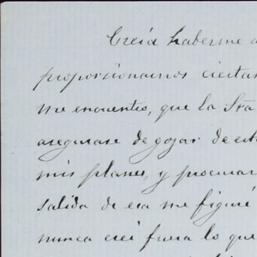 Creía haberme
proporcionarnos
me encuentro, que la Sra
asegurase de gozar de
mis planes, y procurar
salida de esa me figuré
nunca creí fuera lo que